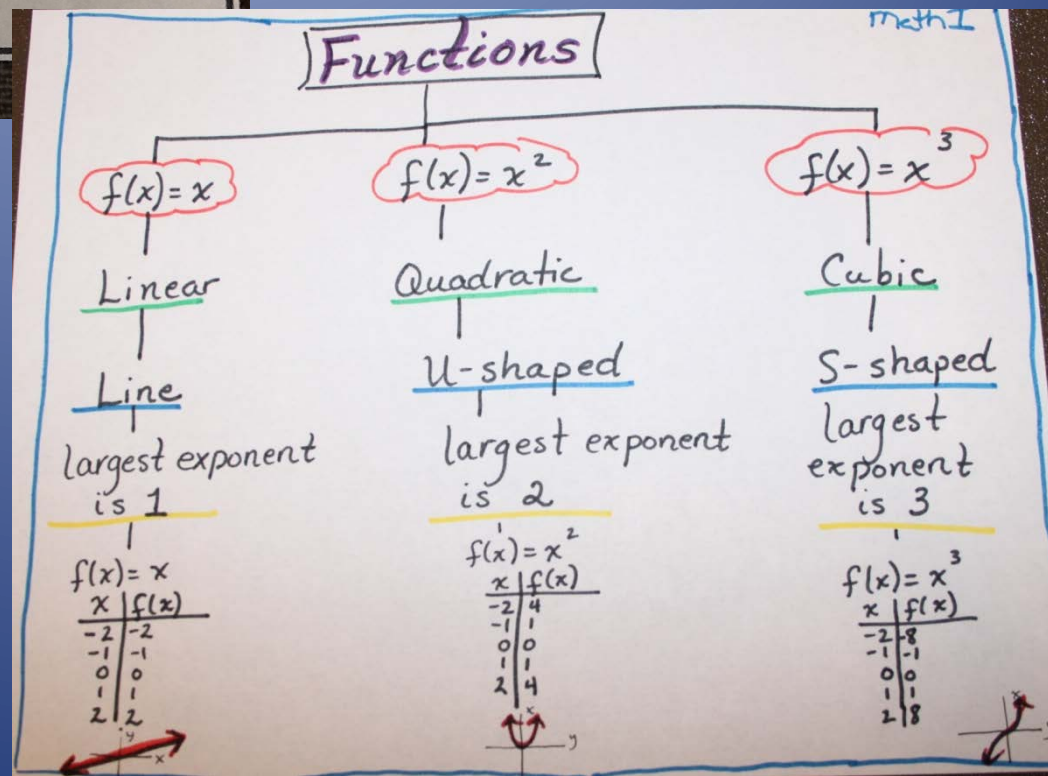 Math I
Functions
f(x) = x
Linear
Line
largest exponent
is 1
f(x) = x
x | f(x)
-2 | -2
-1 | -1
0 | 0
1 | 1
2 | 2
y
x
f(x) = x²
Quadratic
U-shaped
largest exponent
is 2
f(x) = x²
x | f(x)
-2 | 4
-1 | 1
0 | 0
1 | 1
2 | 4
x
y
f(x) = x³
Cubic
S-shaped
largest
exponent
is 3
f(x) = x³
x | f(x)
-2 | -8
-1 | -1
0 | 0
1 | 1
2 | 8
x